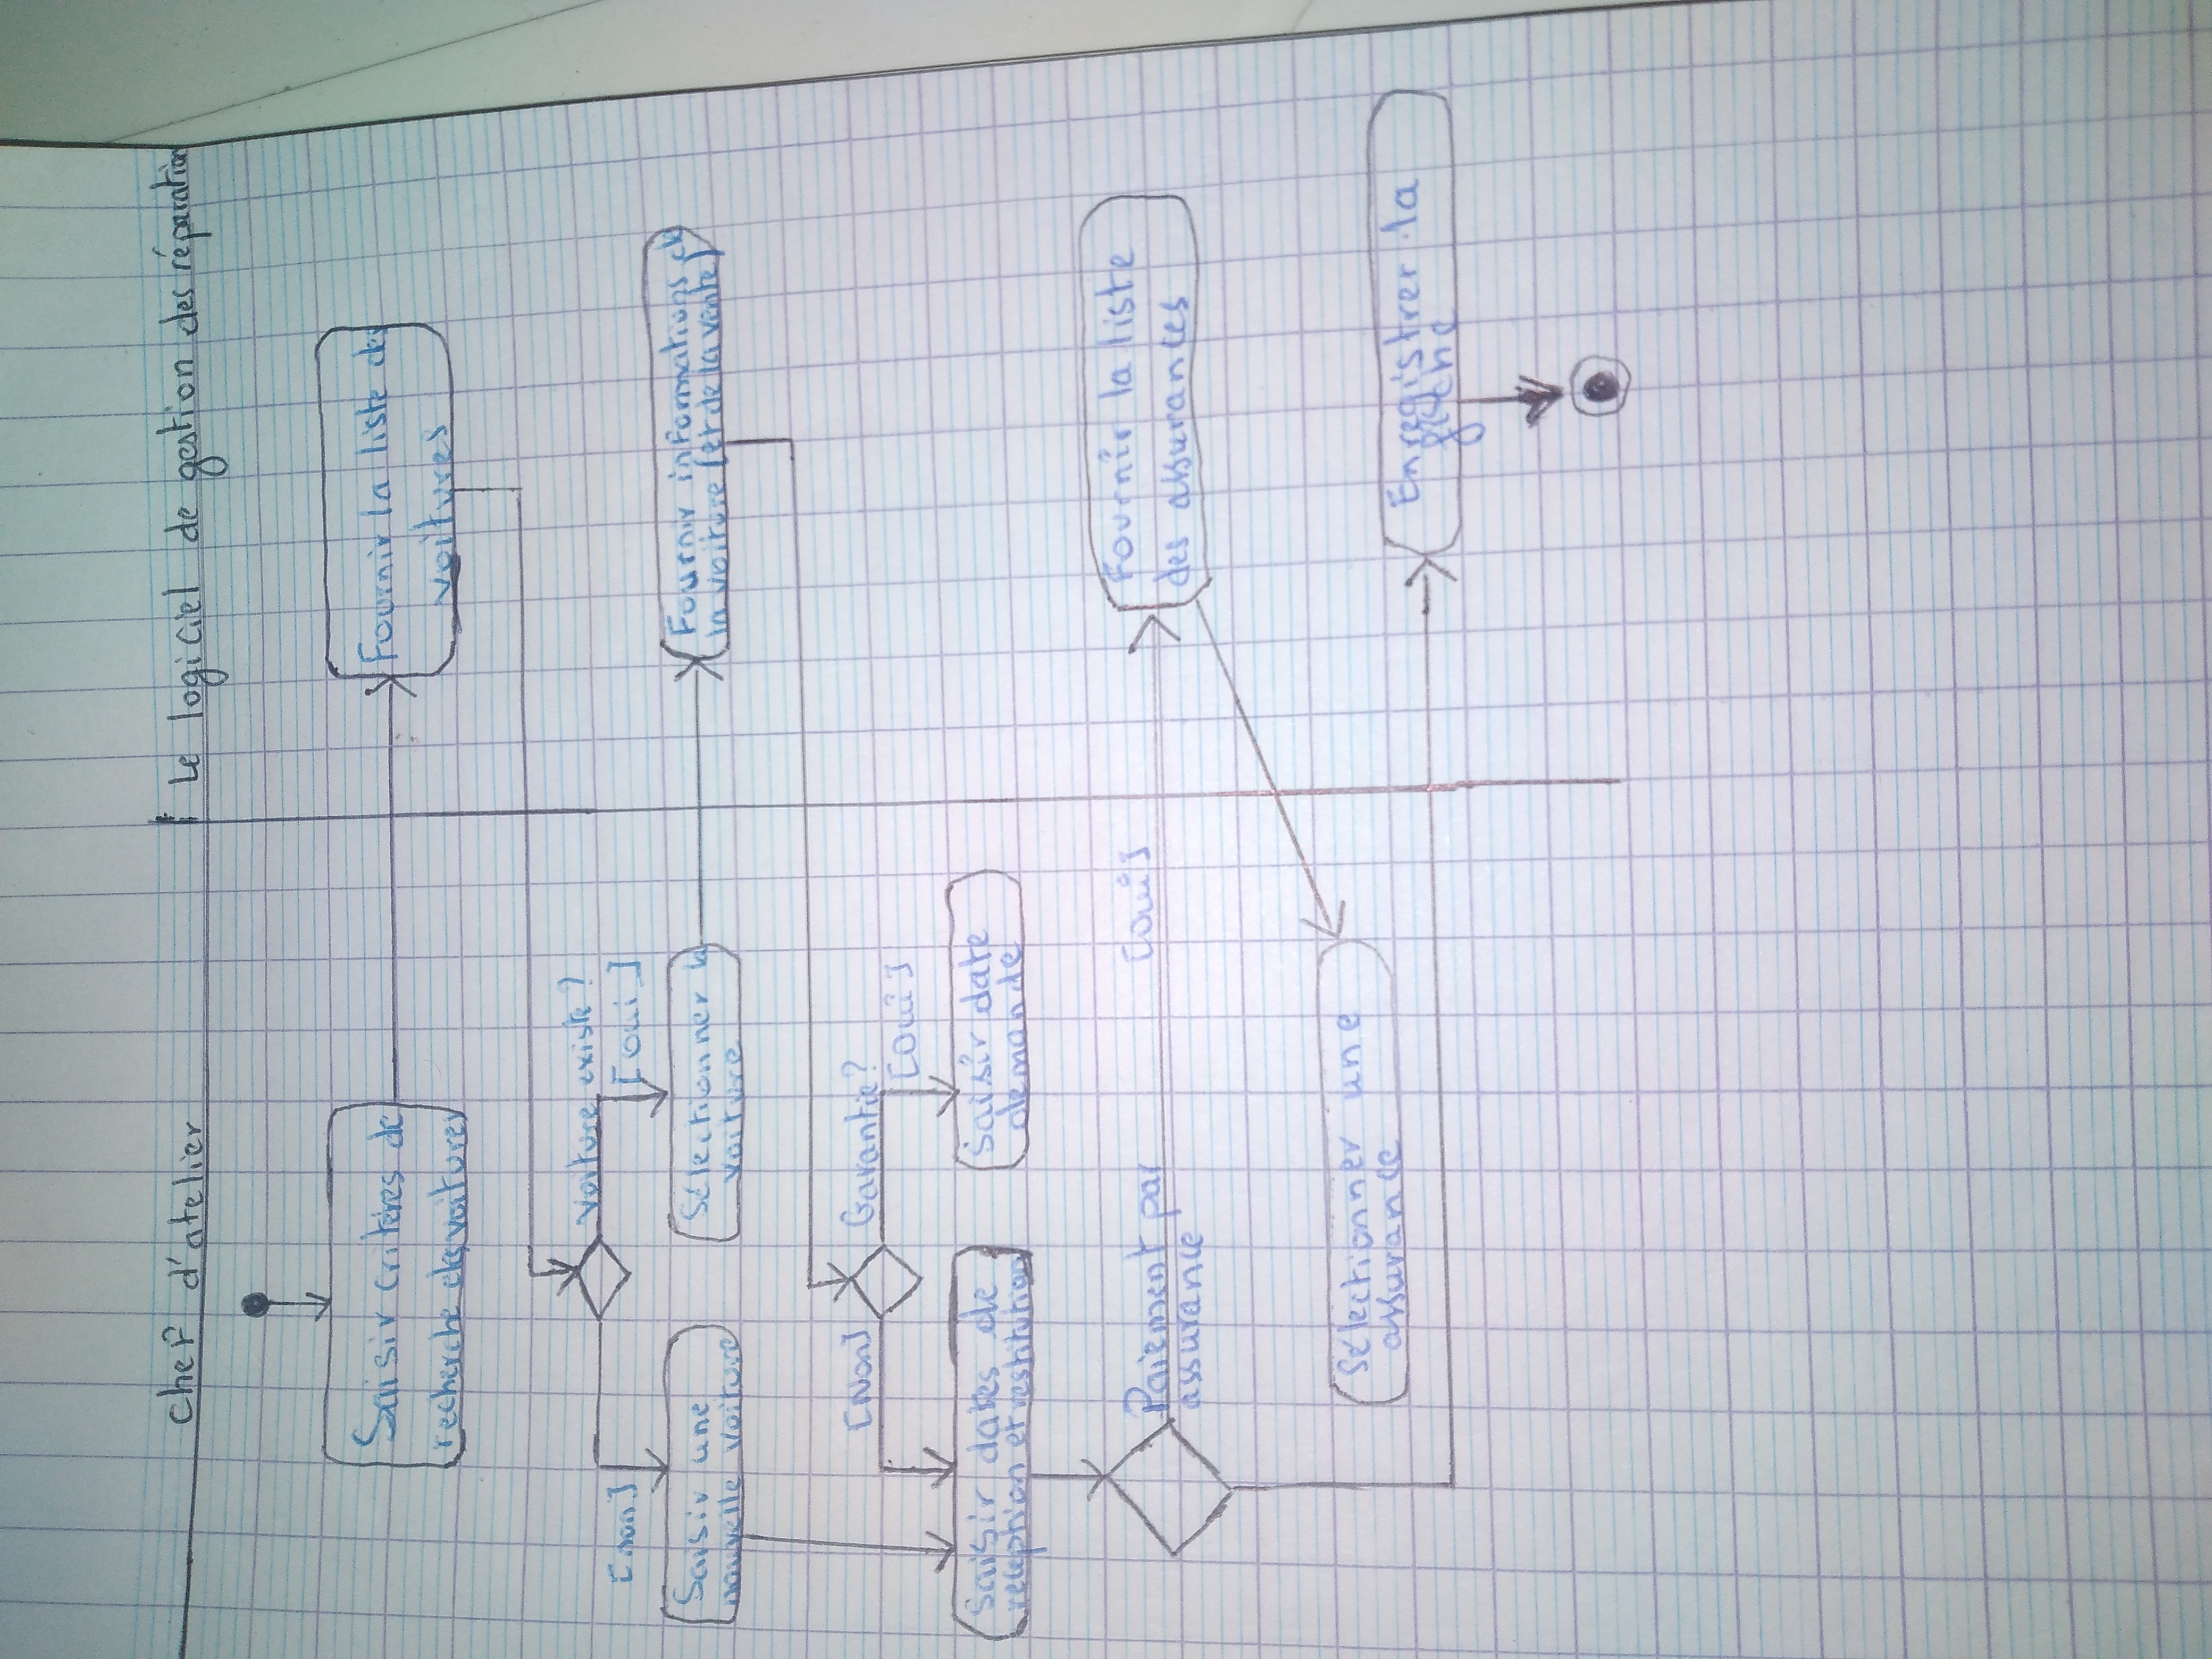 chef d'atelier
Le logiciel de gestion des réparation
Saisir critères de
recherche des voitures
Fournir la liste des
voitures
voiture existe ?
[non]
[oui]
Saisir une
nouvelle voiture
Sélectionner la
voiture
Fournir informations de
la voiture (et de la vente)
[Non]
Garantie ?
[Oui]
Saisir dates de
réception et restitution
Saisir date
demande
Paiement par
assurance
[oui]
Fournir la liste
des assurances
Sélectionner une
assurance
Enregistrer la
fiche